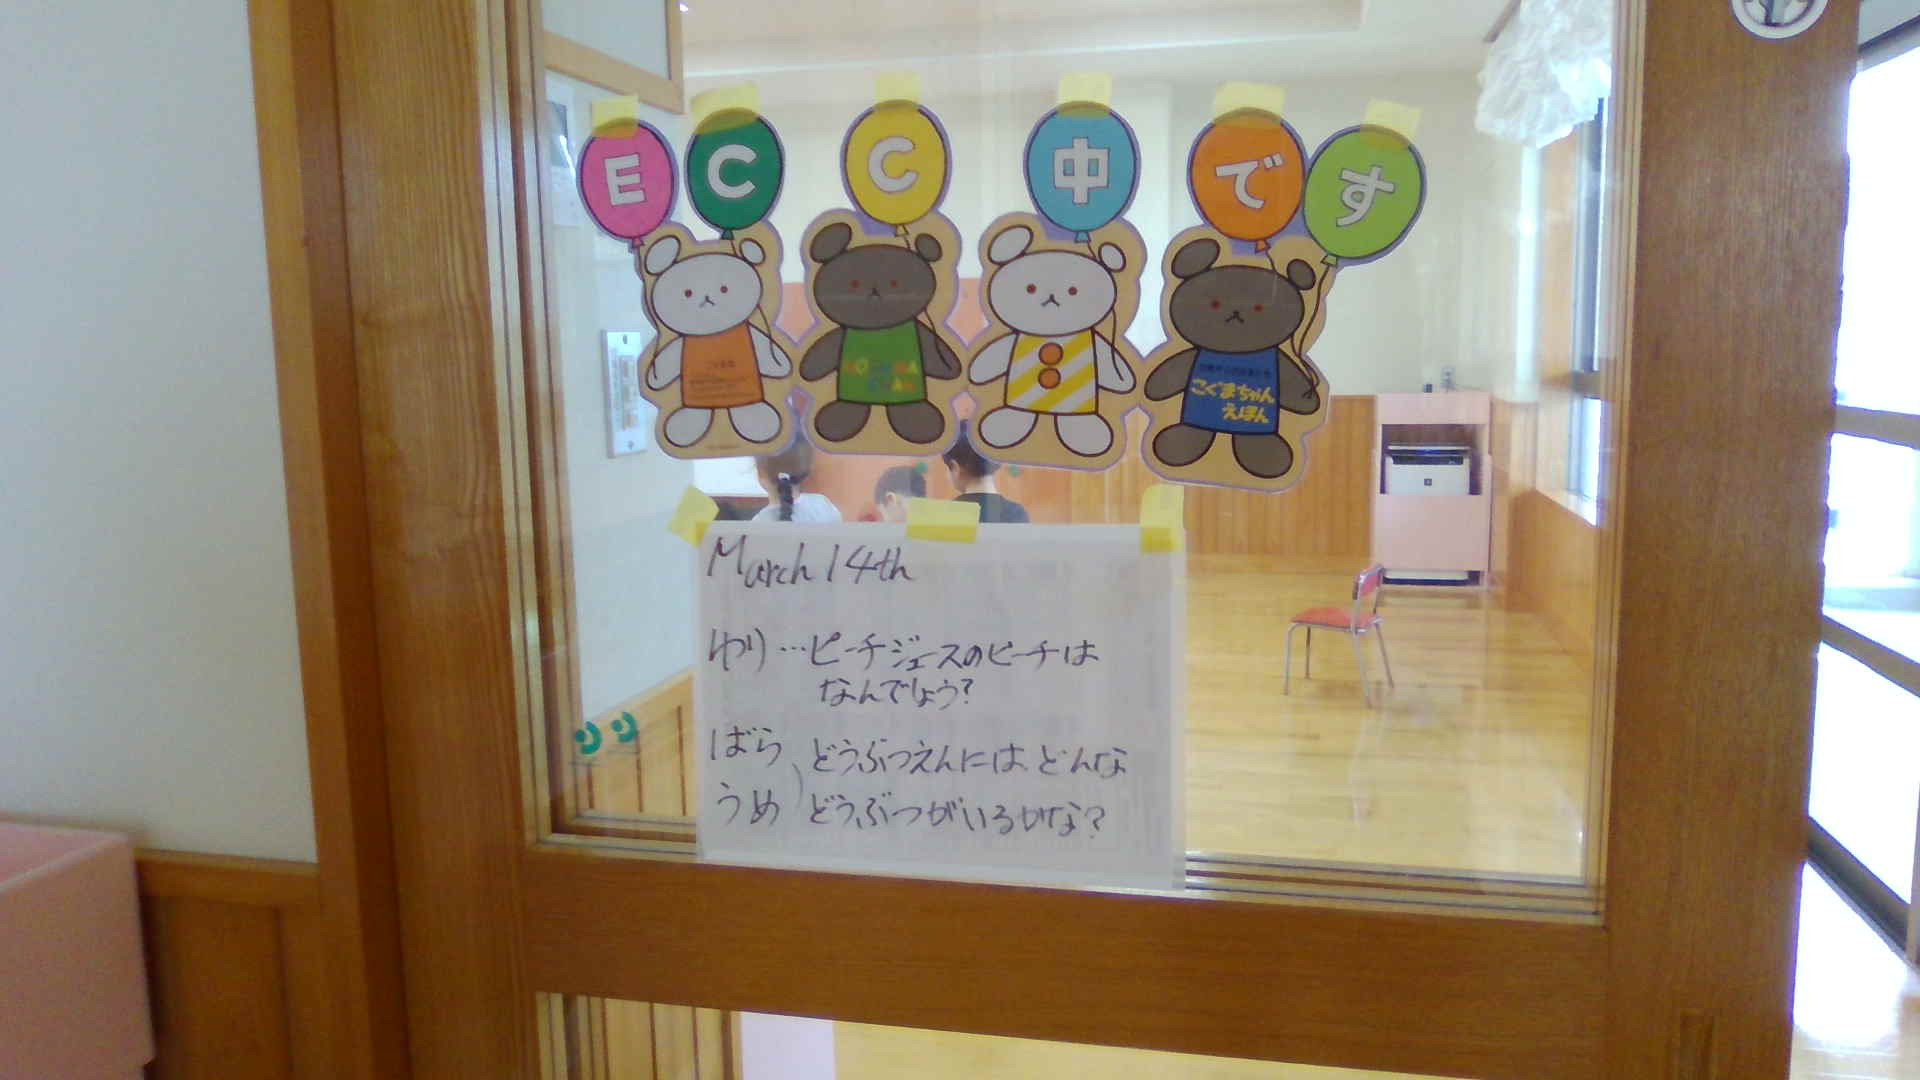 ECC中です
こぐまちゃん
えほん
March 14th
ゆり…ピーチジュースのピーチは
なんでしょう?
ばら
うめ
どうぶつえんには、どんな
どうぶつがいるかな?